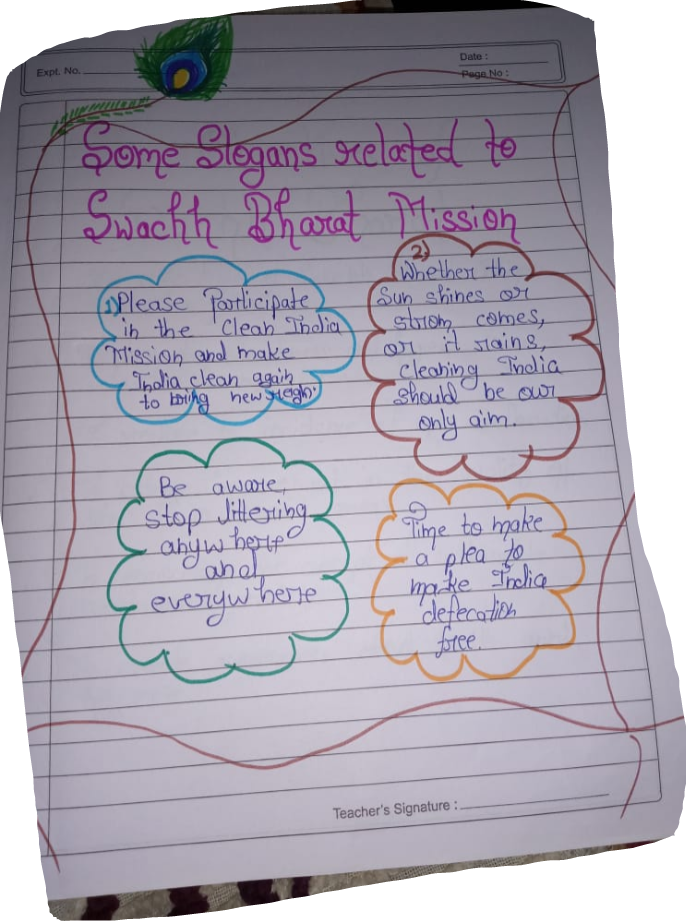 Expt. No.
Date :
Page No :
Some Slogans related to
Swachh Bharat Mission
1) Please Participate
in the Clean India
Mission and make
India clean again
to bring new reign.
2)
Whether the
Sun shines or
strom comes,
or it rains,
cleaning India
should be our
only aim.
Be aware,
stop littering
anywhere
and
everywhere
Time to make
a plea to
make India
defecation
free.
Teacher's Signature :